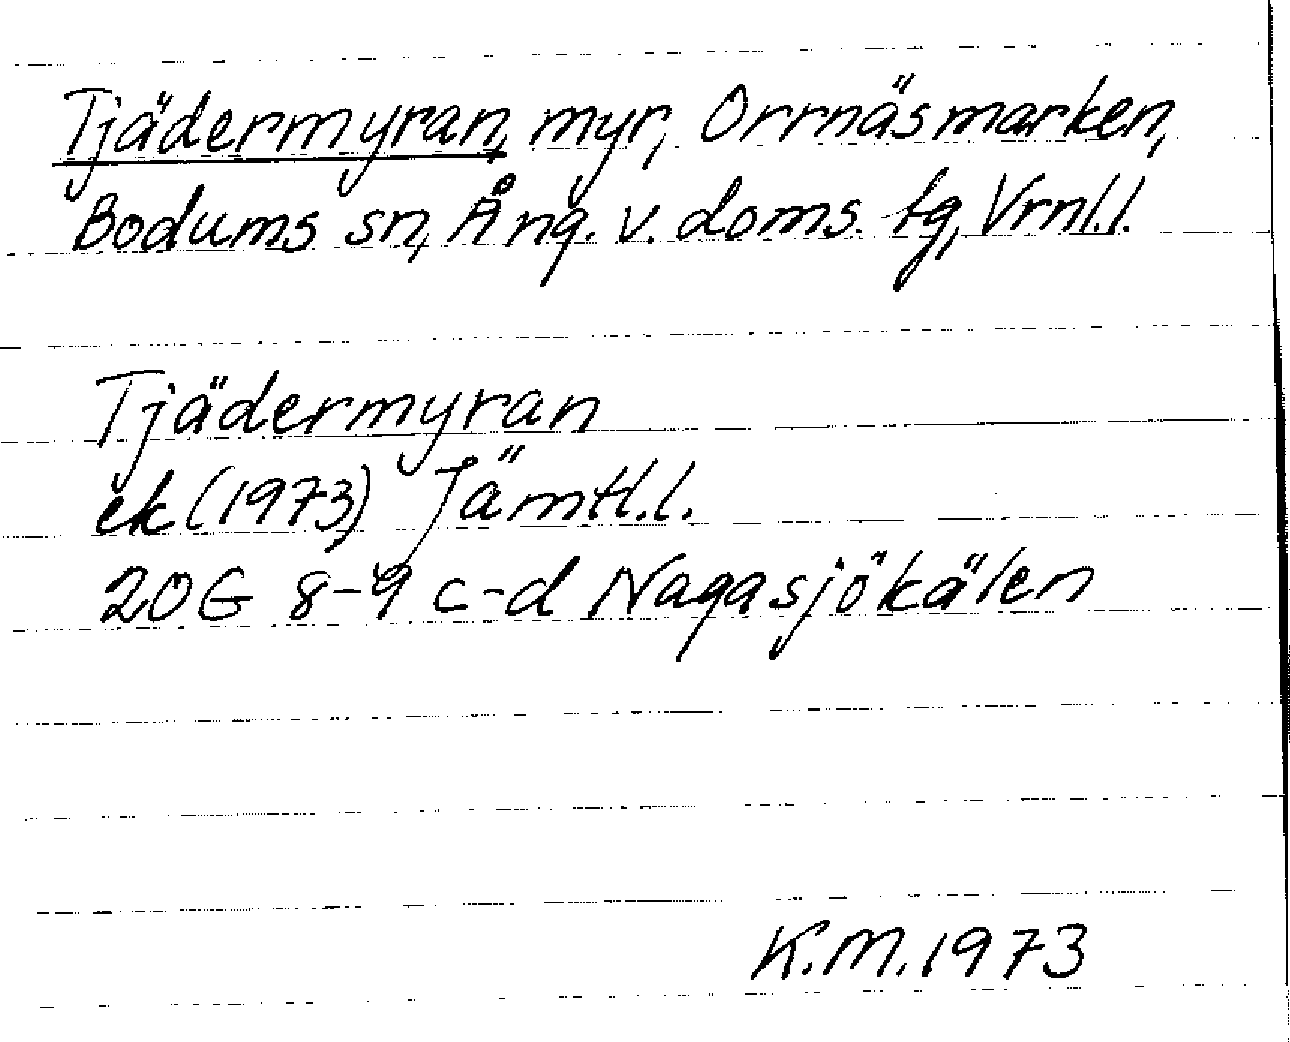 Tjädermyran, myr, Orrnäsmarken,
Bodums sn, Ång. v. doms. tg, Vrnl.l.
Tjädermyran
ek (1973) Jämtl.l.
20G 8-9 c-d Nagasjökälen
K.M. 1973